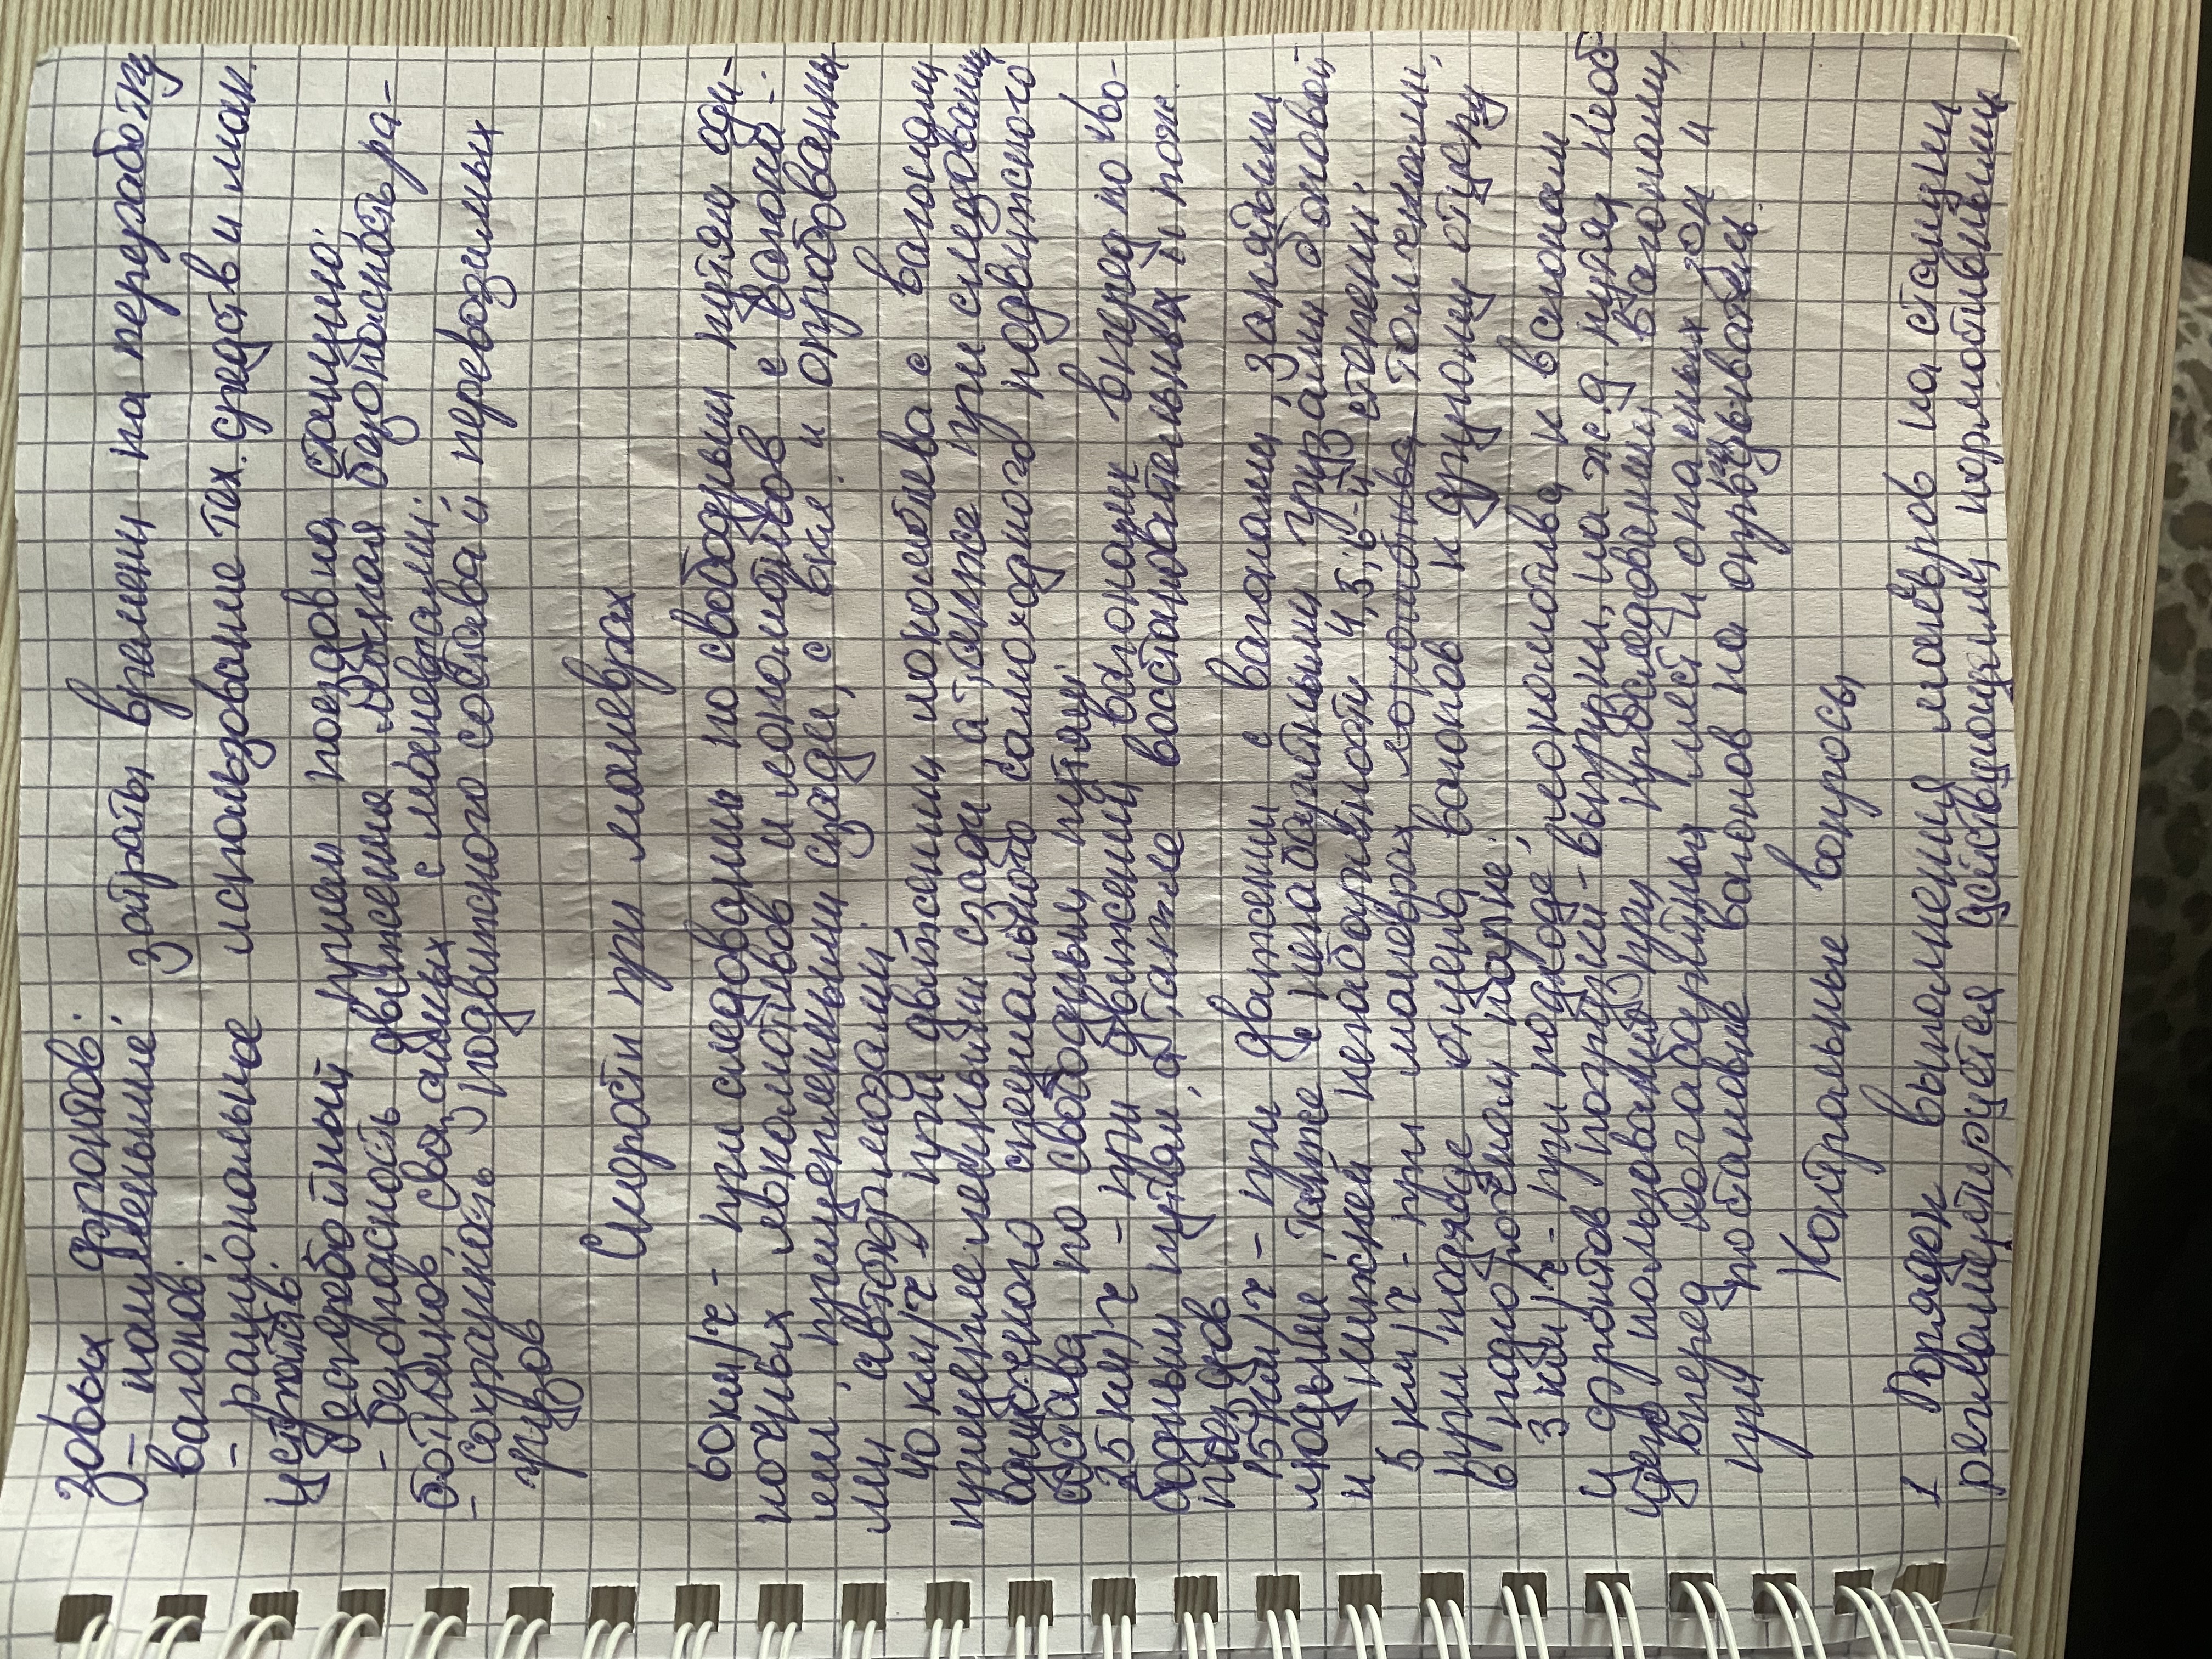 зовых фронтов:
- наименьшие затраты времени на переработку
вагонов.
- рациональное использование тех. средств и ман.
устройств.
- бесперебойный прием поездов на станцию.
- безопасность движения, личная безопасность ра-
ботников, связанных с маневрами;
- сохранность подвижного состава и перевозимых
грузов
Скорости при маневрах
60 км/ч - при следовании по свободным путям оди-
ночных локомотивов и локомотивов с вагона-
ми, прицепленными сзади, с вкл. и опробованны
ми автотормозами.
40 км/ч - при движении локомотива с вагонами
прицепленными сзади, а также при следовании
одиночного специального самоходного подвижного
состава по свободным путям;
25 км/ч - при движении вагонами вперед по сво-
бодным путям, а также восстановительных и пож.
поездов
15 км/ч - при движении с вагонами, занятыми
людьми, также с негабаритными грузами боковой
и нижней негабаритности 4,5,6-й степени.
5 км/ч - при маневрах толчками,
при подходе отцепа вагонов к другому отцепу
в подгорочном парке.
3 км/ч - при подходе локомотива к вагонам
и фронтов погрузки-выгрузки, на ж.д путях необ
щего пользования, при проследовании вагонами
вперед негабаритных мест и опасных зон и
при постановке вагонов на опрокидыватель.
Контрольные вопросы
1 Порядок выполнения манёвров на станции
регламентируется действующими нормативными